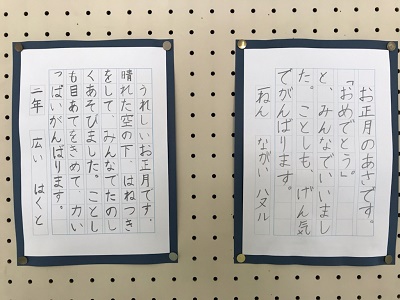 お正月のあさです。
「おめでとう。」
と、みんなでいいまし
た。ことしも、げん気
でがんばります。
一ねん ながい ハヌル
うれしいお正月です。
晴れた空の下、はねつき
をして、みんなでたのし
くあそびました。ことし
も目あてをきめて、力い
っぱいがんばります。
二年 広い はくと